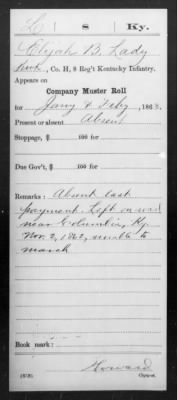 L | 8 | Ky.
Elijah B. Lady
Co. H, 8 Reg't Kentucky Infantry.
Appears on
Company Muster Roll
for Jany & Feby, 1863.
Present or absent Absent
Stoppage, $ 100 for
Due Gov't, $ 100 for
Remarks: Absent last
payment. Left on road
near Columbia, Ky.
Nov. 2, 1862, unable to
march
Book mark:
Howard
Copyist.